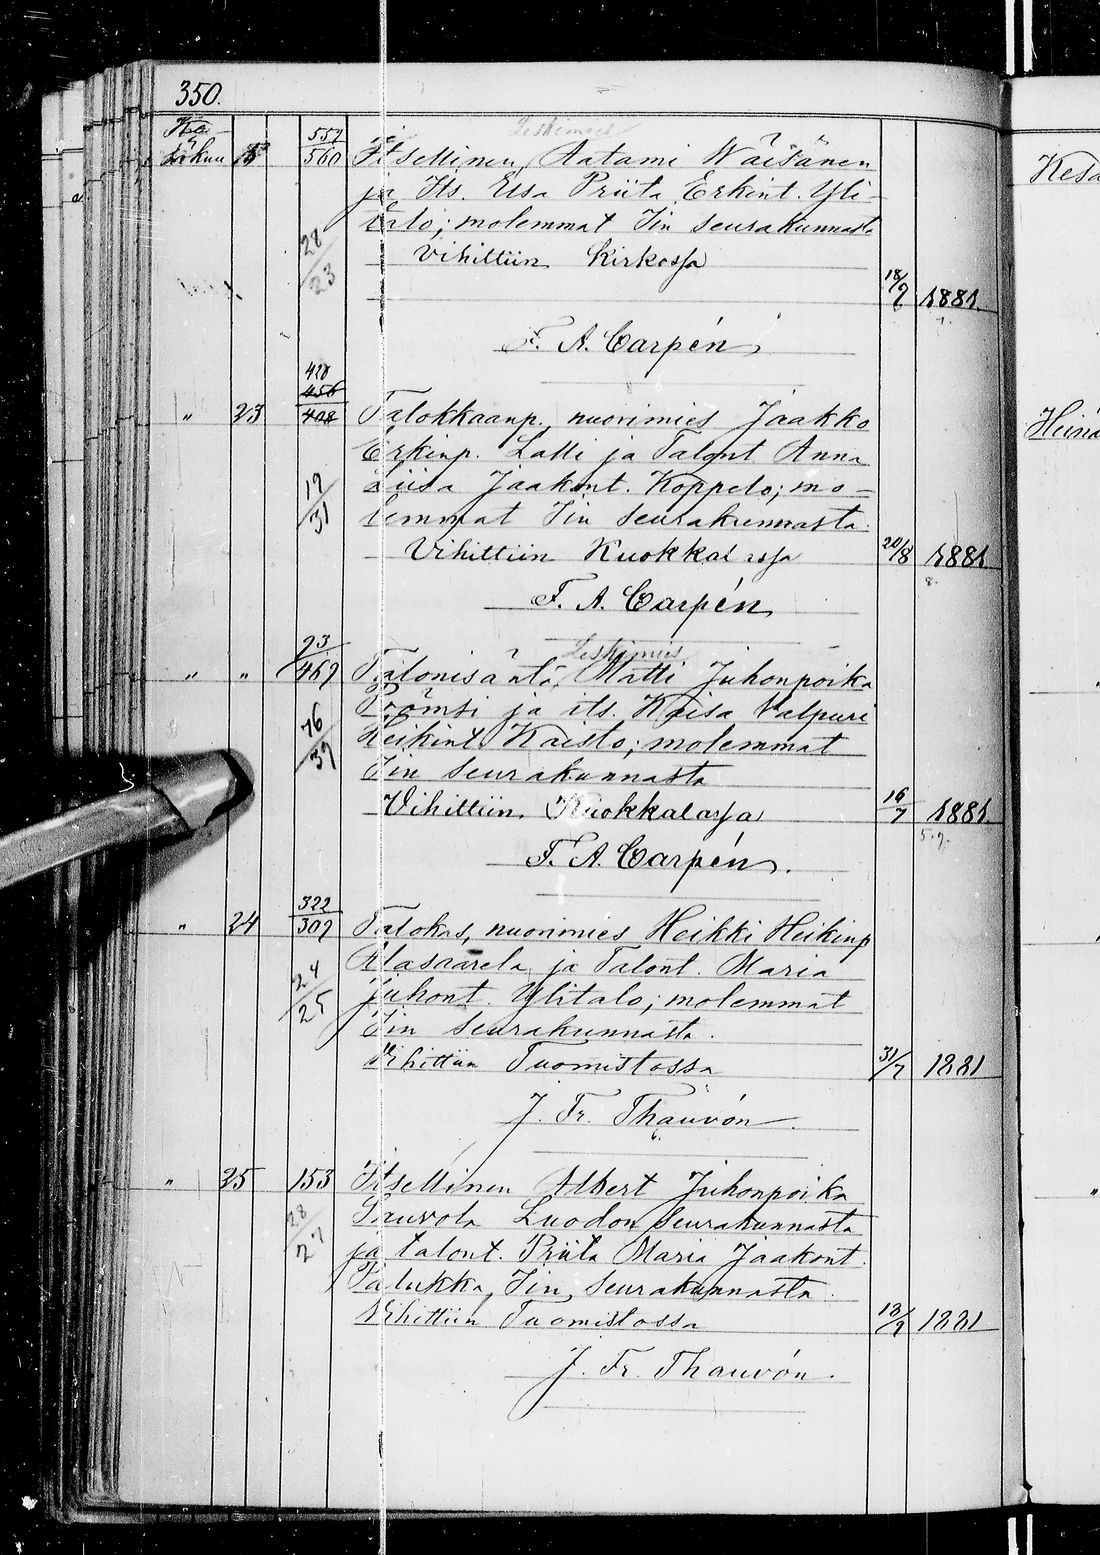 350.
Leskimies
Ke-
säkuu 15 559/560 Itsellinen, Aatami Wäisänen
ja Its. Elsa Priita Erkint. Yli-
talo; molemmat Iin seurakunnasta
28/23 Vihittiin Kirkossa
18/7 1881.
F. A. Carpén.
428
456
" 23 408 Talokkaanp. nuorimies Jaakko
Erkinp. Latti ja Talont Anna
19/31 Liisa Jaakint. Koppelo; mo-
lemmat Iin seurakunnasta.
Vihittiin Kuokkalassa 20/8 1881
8.
F. A. Carpén.
Leskimies
" " 93/469 Talonisäntä, Matti Juhonpoika
Römsi ja its. Kaisa Valpuri
16/37 Heikint. Kaisto; molemmat
Iin seurakunnasta
Vihittiin Kuokkalassa 16/7 1881.
5.7.
F. A. Carpén.
" 24 322/307 Talokas, nuorimies Heikki Heikinp
Alasaarela ja Talont. Maria
24/25 Juhont. Ylitalo; molemmat
Iin seurakunnasta.
Vihittiin Tuomistossa 31/7 1881
J. Fr. Thauvón.
" 25 153 Itsellinen Albert Juhonpoika
28/27 Sauvola Luodon seurakunnasta
ja talont. Priita Maria Jaakont.
Palukka, Iin seurakunnasta.
Vihittiin Tuomistossa 18/9 1881
J. Fr. Thauvón.
Kesä
Heinä